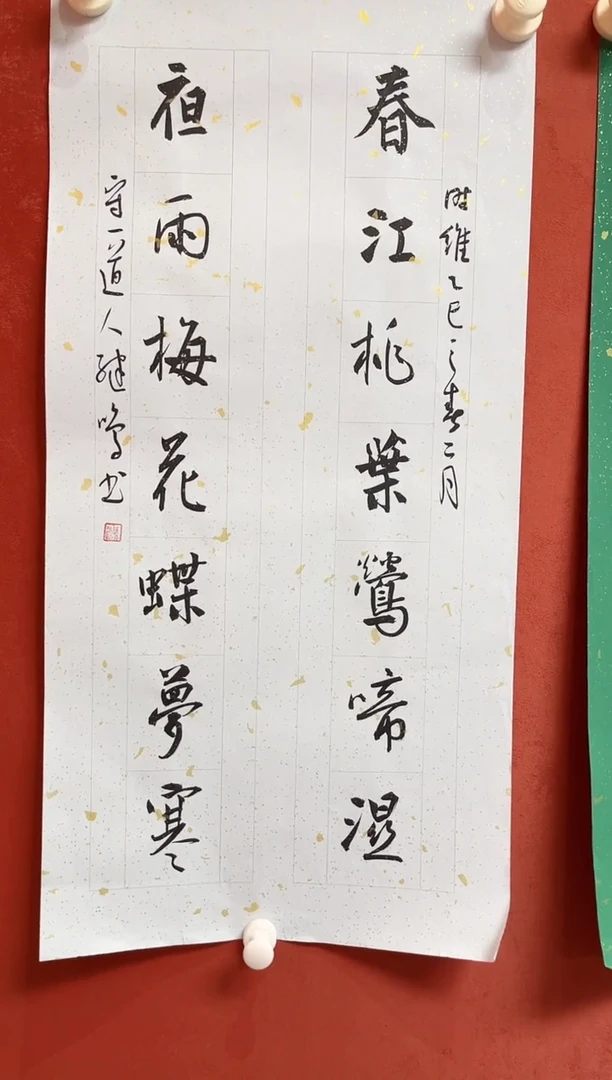 时維乙巳之春二月
春江桃葉鶯啼湿
夜雨梅花蝶夢寒
守一道人鳴书